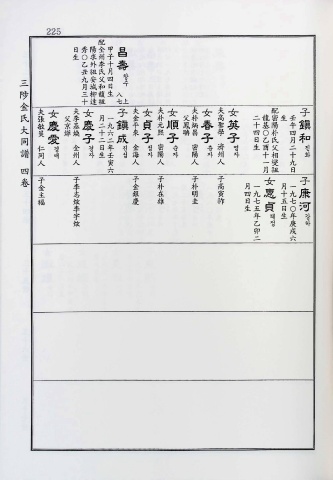 225
三陟金氏大同譜 四卷
昌壽 창수
上八七
甲子十月四日生
配金州李氏父和龍祖
陽來外祖安城柳達
秀○乙丑九月三十
日生
子鎭和 진화
壬午四月二十九日
生
配密陽朴氏父相燮祖
龍基○乙酉十一月
二十四日生
女英子 영자
夫高聖學 濟州人
女春子 춘자
夫朴炳善 密陽人
父鳳驎
女順子 순자
夫朴元熙 密陽人
女貞子 정자
夫金平來 金海人
子鎭成 진성
一九六二年壬寅六
月二十二日生
女慶子 경자
夫李嘉煥 全州人
父京鎭
女慶愛 경애
夫張敏昊 仁同人
子康河 강하
一九七○年庚戌六
月十五日生
女惠貞 혜정
一九七五年乙卯二
月四日生
子高寅祚
子朴明圭
子朴在雄
子金銀慶
子李志炫李宇炫
子金主福